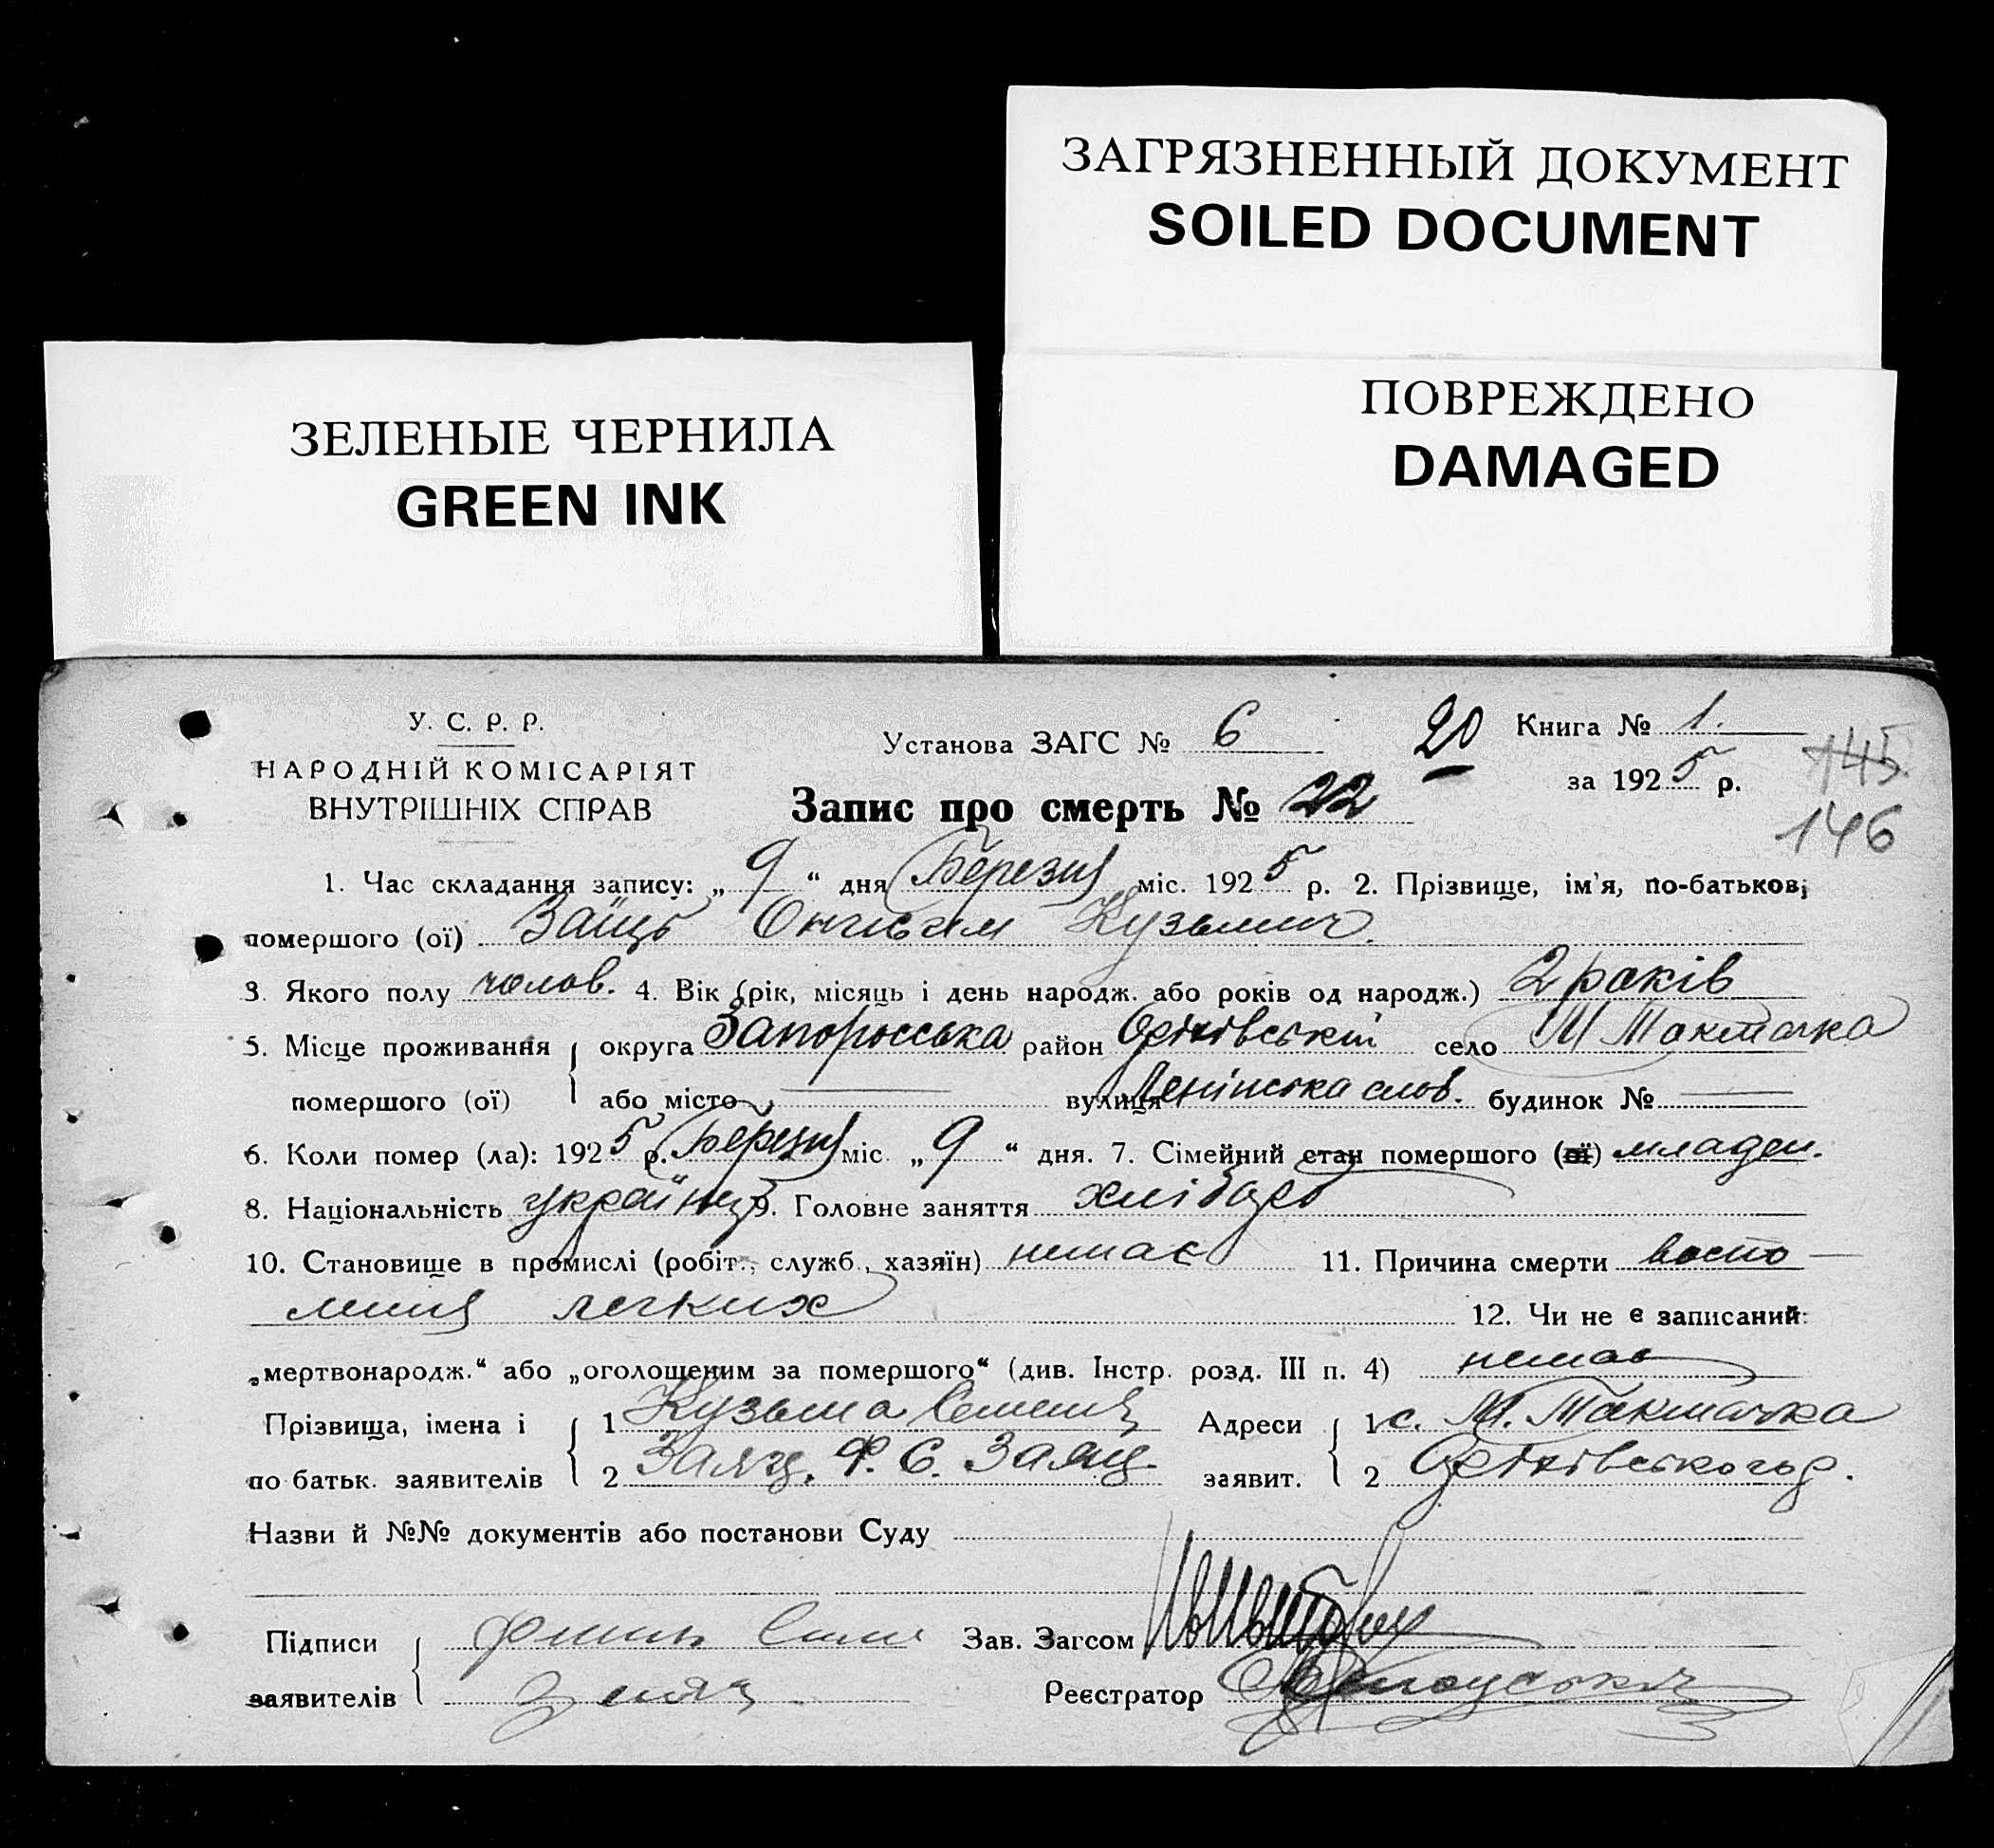 ЗАГРЯЗНЕННЫЙ ДОКУМЕНТ
SOILED DOCUMENT
ПОВРЕЖДЕНО
DAMAGED
ЗЕЛЕНЫЕ ЧЕРНИЛА
GREEN INK
У. С. Р. Р.
НАРОДНІЙ КОМІСАРІЯТ
ВНУТРІШНІХ СПРАВ
Установа ЗАГС № 6
20
Книга № 1.
за 1925 р.
145
146
Запис про смерть № 22
1. Час складання запису: „ 9 “ дня Березня міс. 1925 р. 2. Прізвище, ім'я, по-батькові
помершого (ої) Заїць Кузьмич.
3. Якого полу чолов. 4. Вік (рік, місяць і день народж. або років од народж.) 2 років
5. Місце проживання округа район село М Токмачка
помершого (ої) або місто — вулиця слоб. будинок № —
6. Коли помер (ла): 1925 р. Березня міс. „ 9 “ дня. 7. Сімейний стан помершого (ої) младен.
8. Національність українець 9. Головне заняття
10. Становище в промислі (робіт., служб., хазяїн) немає 11. Причина смерти воспо-
ления легких 12. Чи не є записаний:
„мертвонародж.“ або „оголошеним за помершого“ (див. Інстр. розд. III п. 4) немає
Прізвища, імена і 1 Кузьма Адреси 1 с. М. Токмачка
по батьк. заявителів 2 Заяц. Ф. С. Заяц. заявит. 2
Назви й №№ документів або постанови Суду
Підписи Зав. Загсом
заявителів Реєстратор